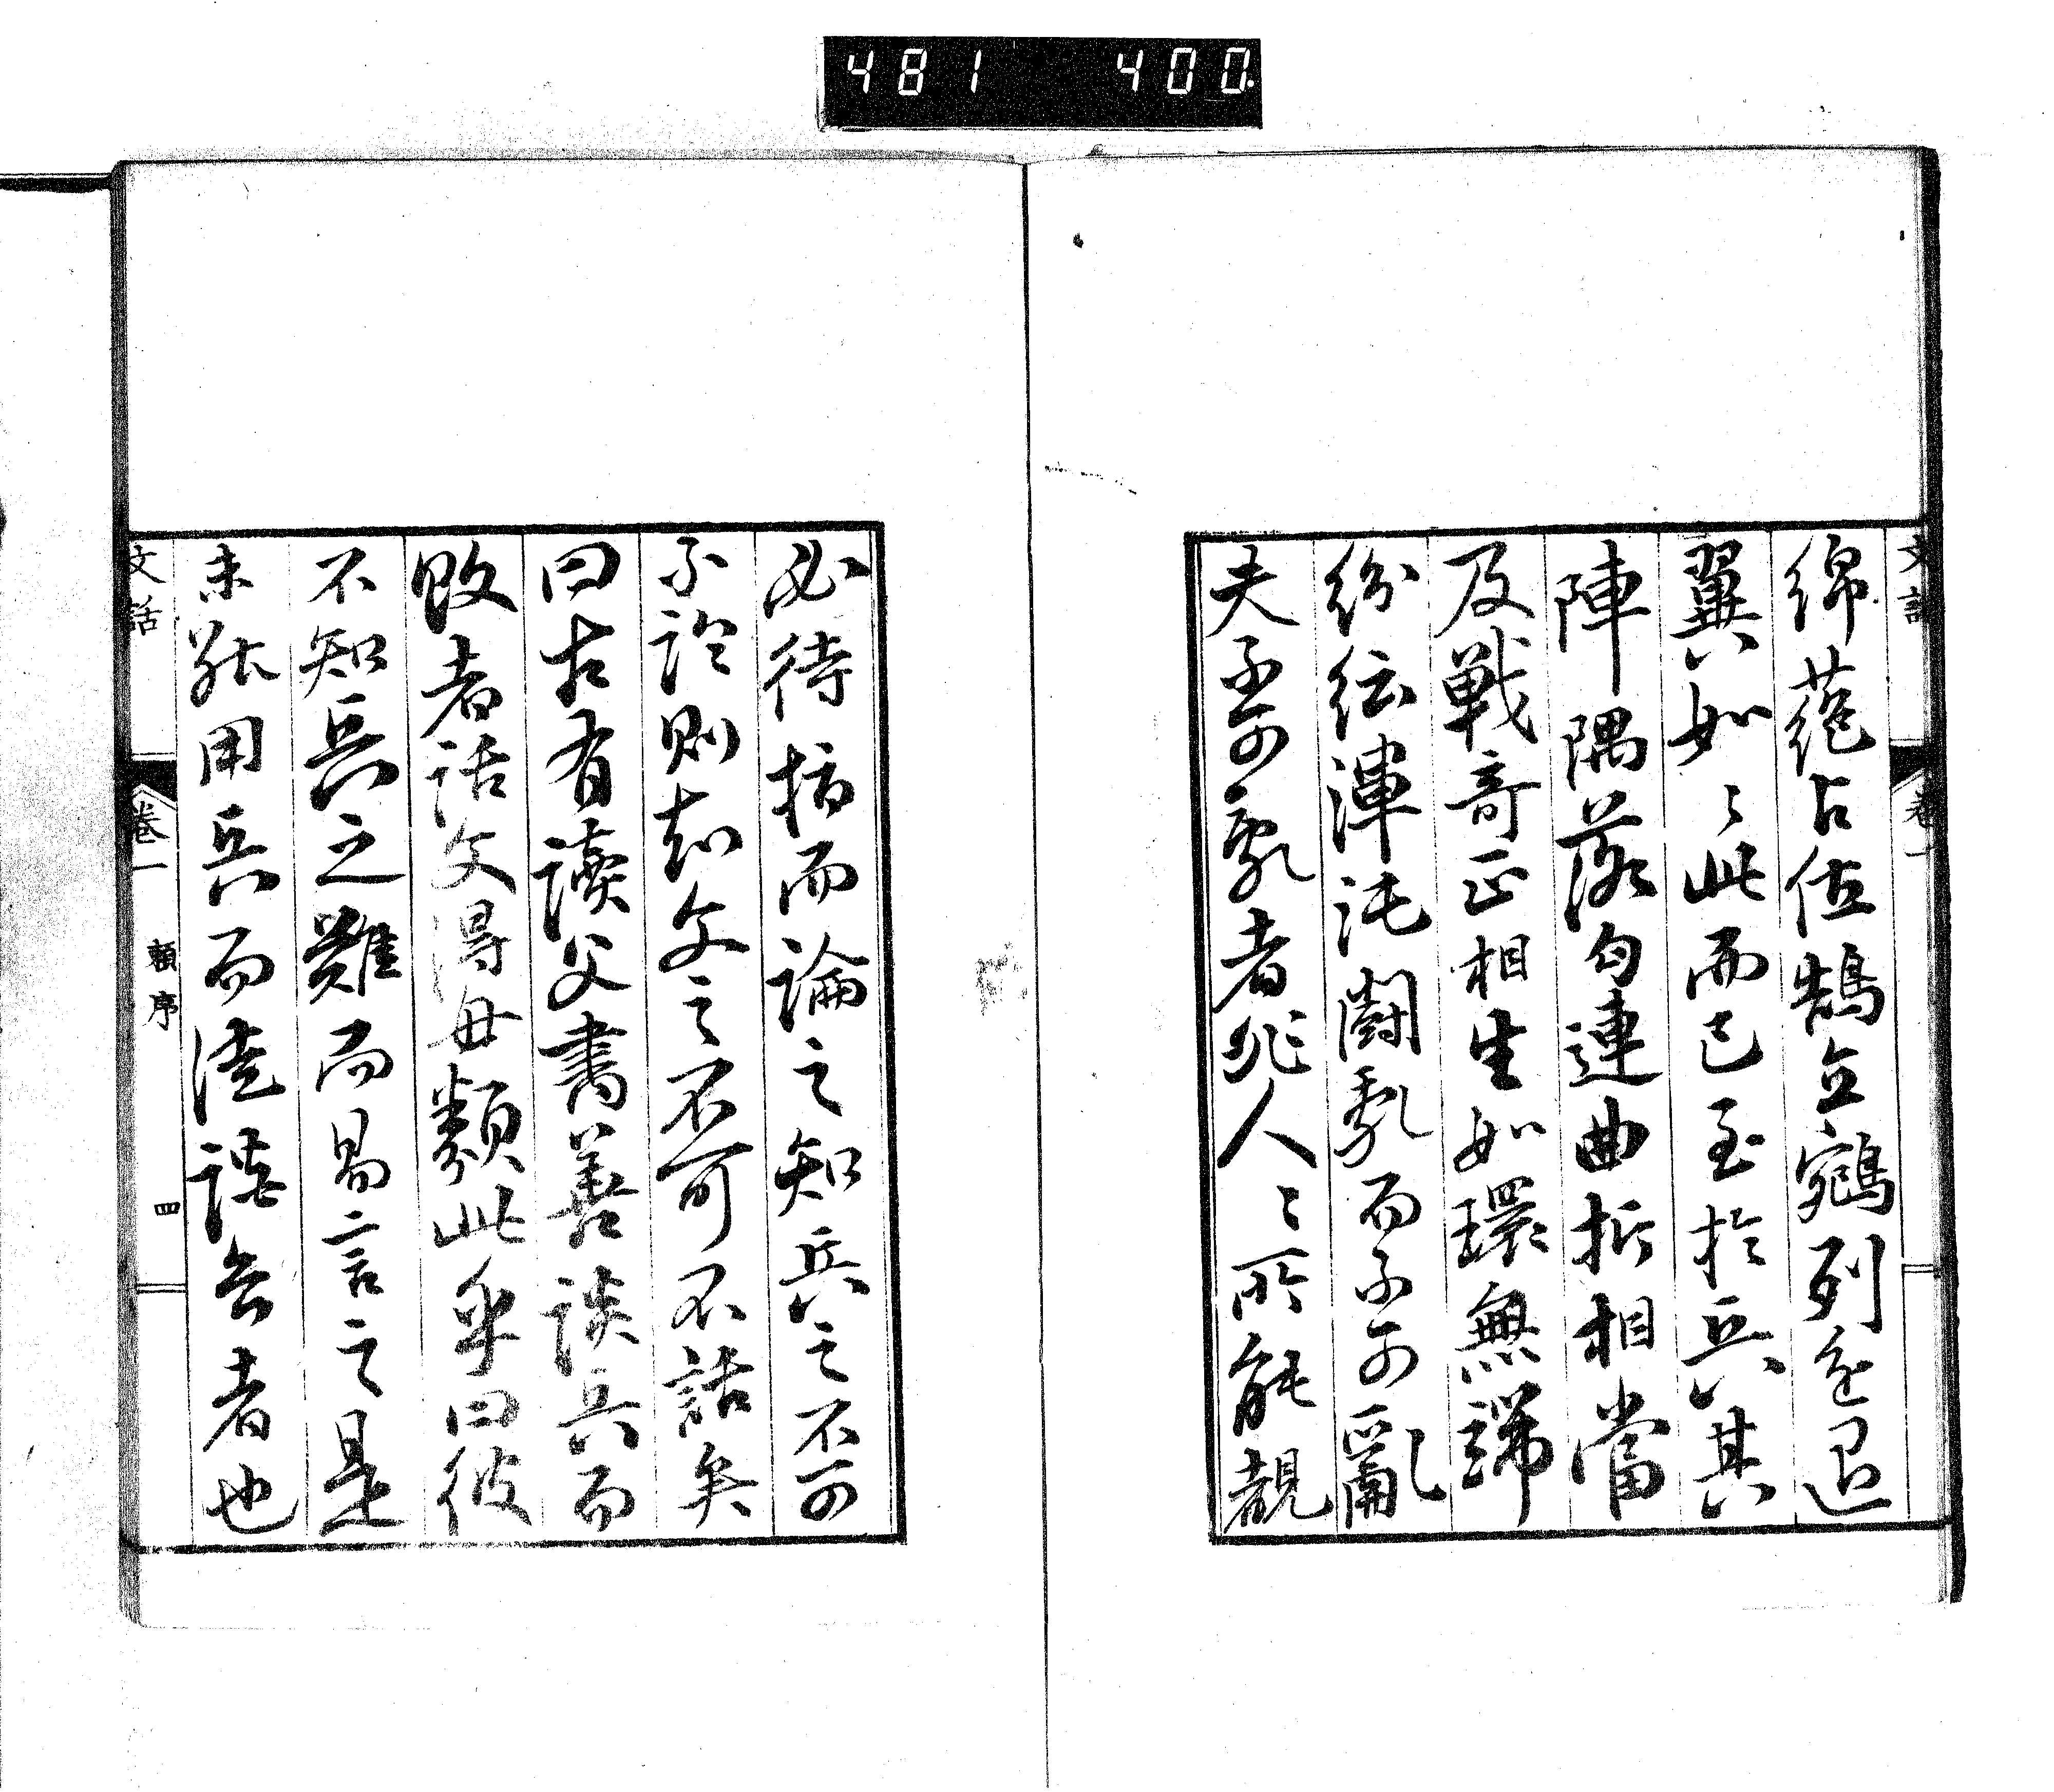 481 400.
文話 卷一
綿蕝占位鵠立鵷列進退
翼如々此而已至於兵其
陣隅落勾連曲折相當
及戰奇正相生如環無端
紛紜渾沌鬪乱而不可亂
夫至可乱者非人々所能覩
必待指而論之知兵之不可
不論則知文之不可不話矣
曰古有讀父書善談兵而
敗者話文得毋類此乎曰彼
不知兵之難而易言之是
未能用兵而徒談兵者也
文話 卷一 賴序 四